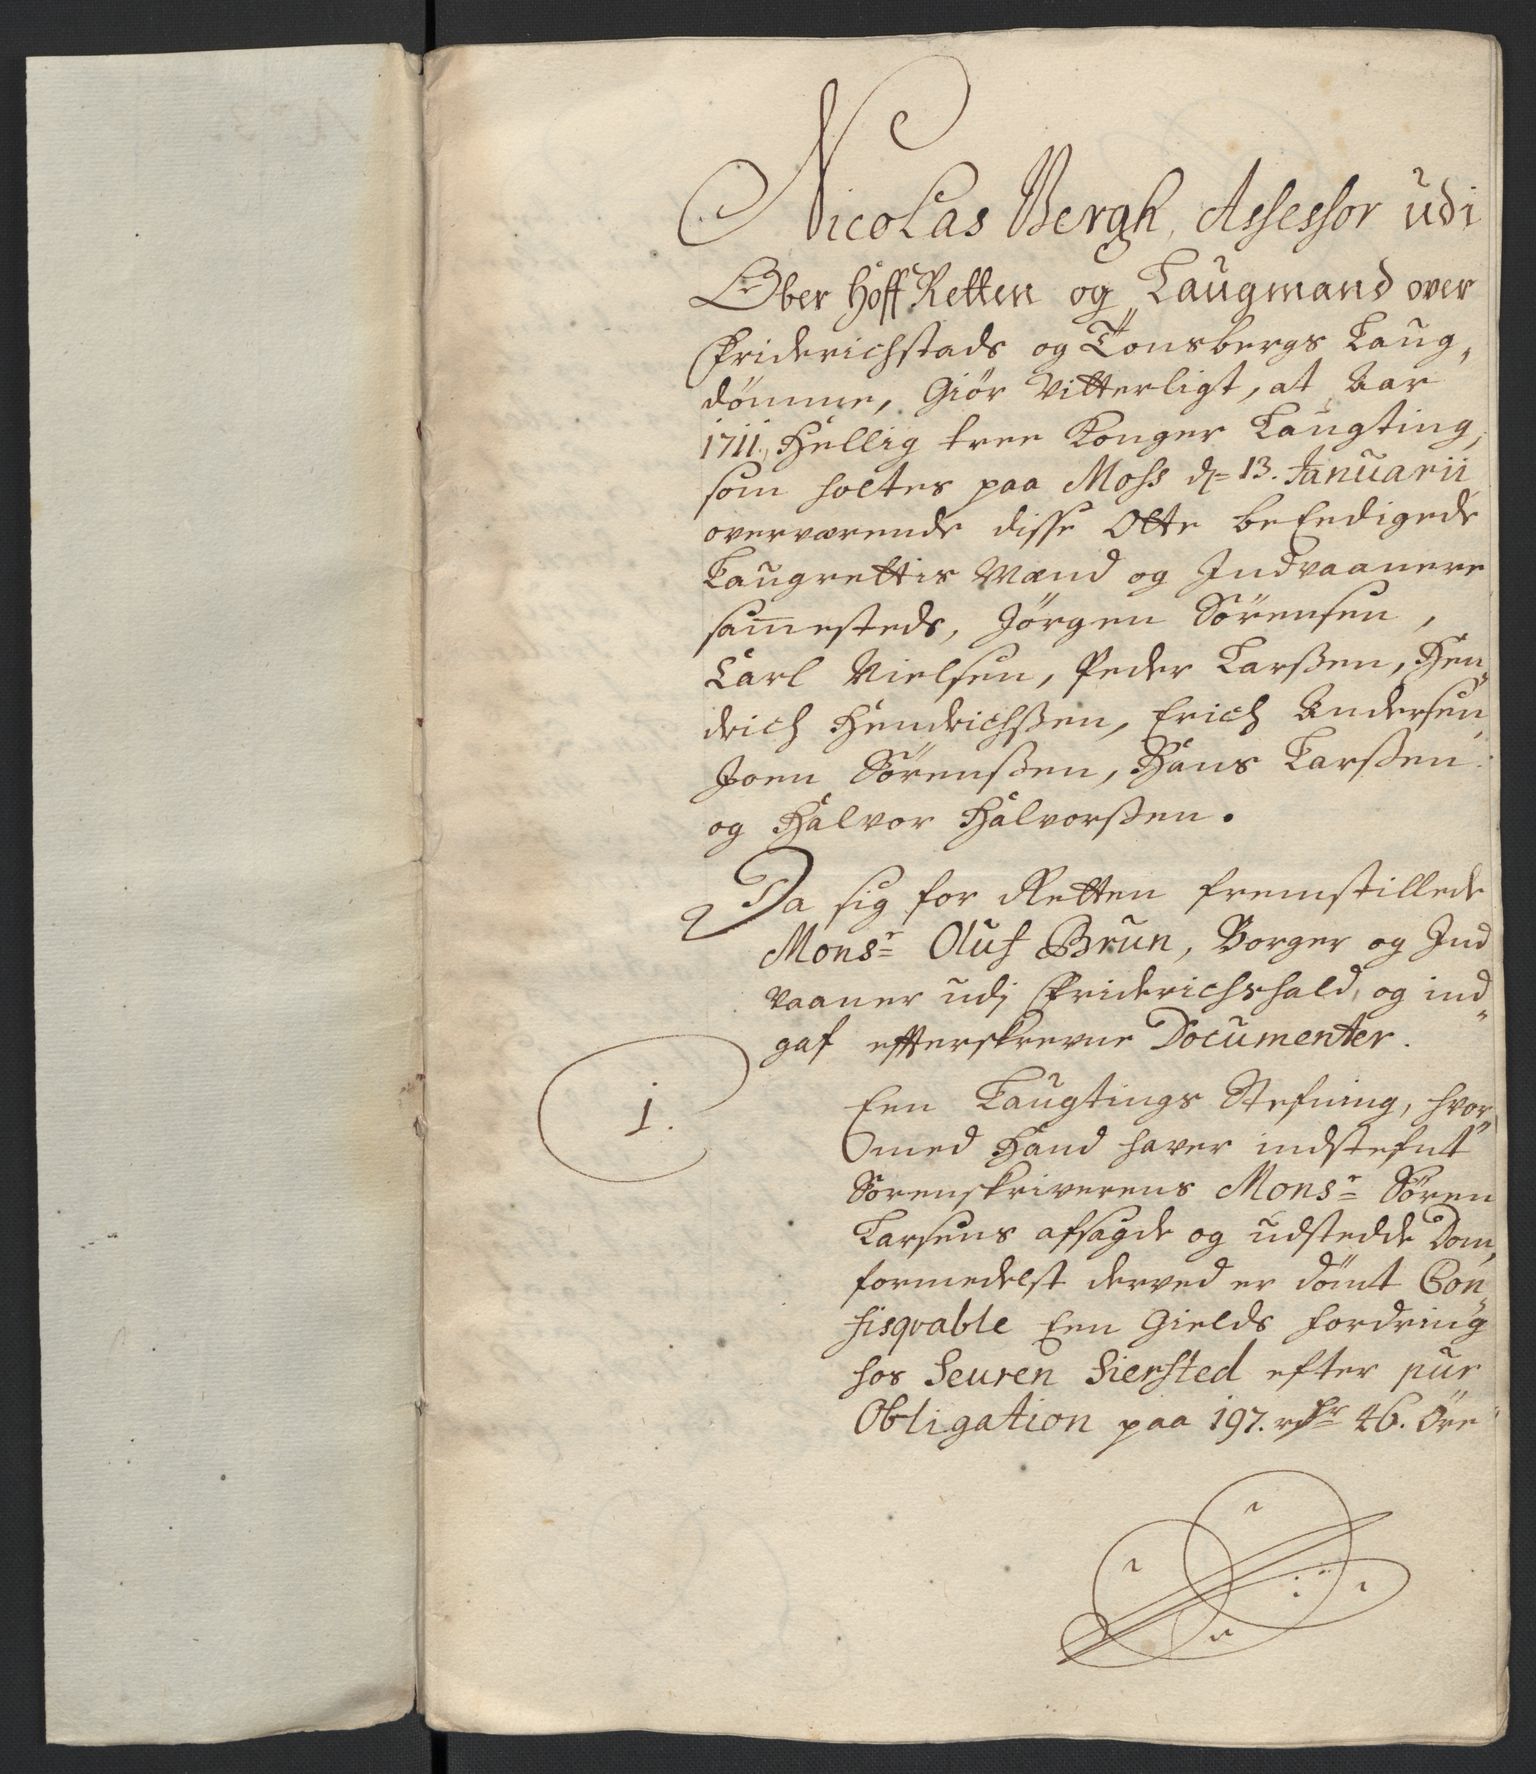 Nicolas Bergh, Assessor udi
Ober Hoff Retten og Laugmand over
Friderichstads og Tönsbergs Laug„
dömme, Giör Vitterligt, at Aar
1711. Hellig tree Konger Laugting,
som holtes paa Moss d= 13. Januarii
overværende disse Otte beEedigede
Laugrettis Mænd og Indvaanere
sammesteds, Jörgen Sörensen,
Carl Nielsen, Peder Larssen, Hen„
drich Hendrichssen, Erich Andersen
Joen Sörenssen, Hans Larssen
og Halvor Halvorssen.
Da sig for Retten fremstillede
Monsr= Oluf Brun, Borger og Ind
vaaner udj Friderichshald, og ind„
gaf efterskrevne Documenter.
1.
Een Laugtings Stefning, hvor„
med Hand haver indstefnt
Sorenskriverens Monsr= Sören
Larsens afsagde og udstedde Dom,
formedelst derved er dömt Con„
fisqvable Een Gields fordring
hos Seuren Siersted efter pur
Obligation paa 197. rdr 46. Öre